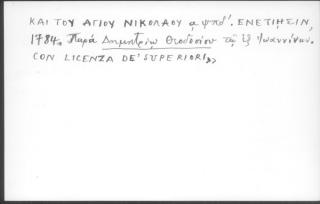 ΚΑΙ ΤΟΥ ΑΓΙΟΥ ΝΙΚΟΛΑΟΥ αψπδ'. ΕΝΕΤΙΗΣΙΝ,
1784. Παρά Δημητρίῳ Θεοδοσίου τῷ ἐξ Ἰωαννίνων.
CON LICENZA DE' SUPERIORI»